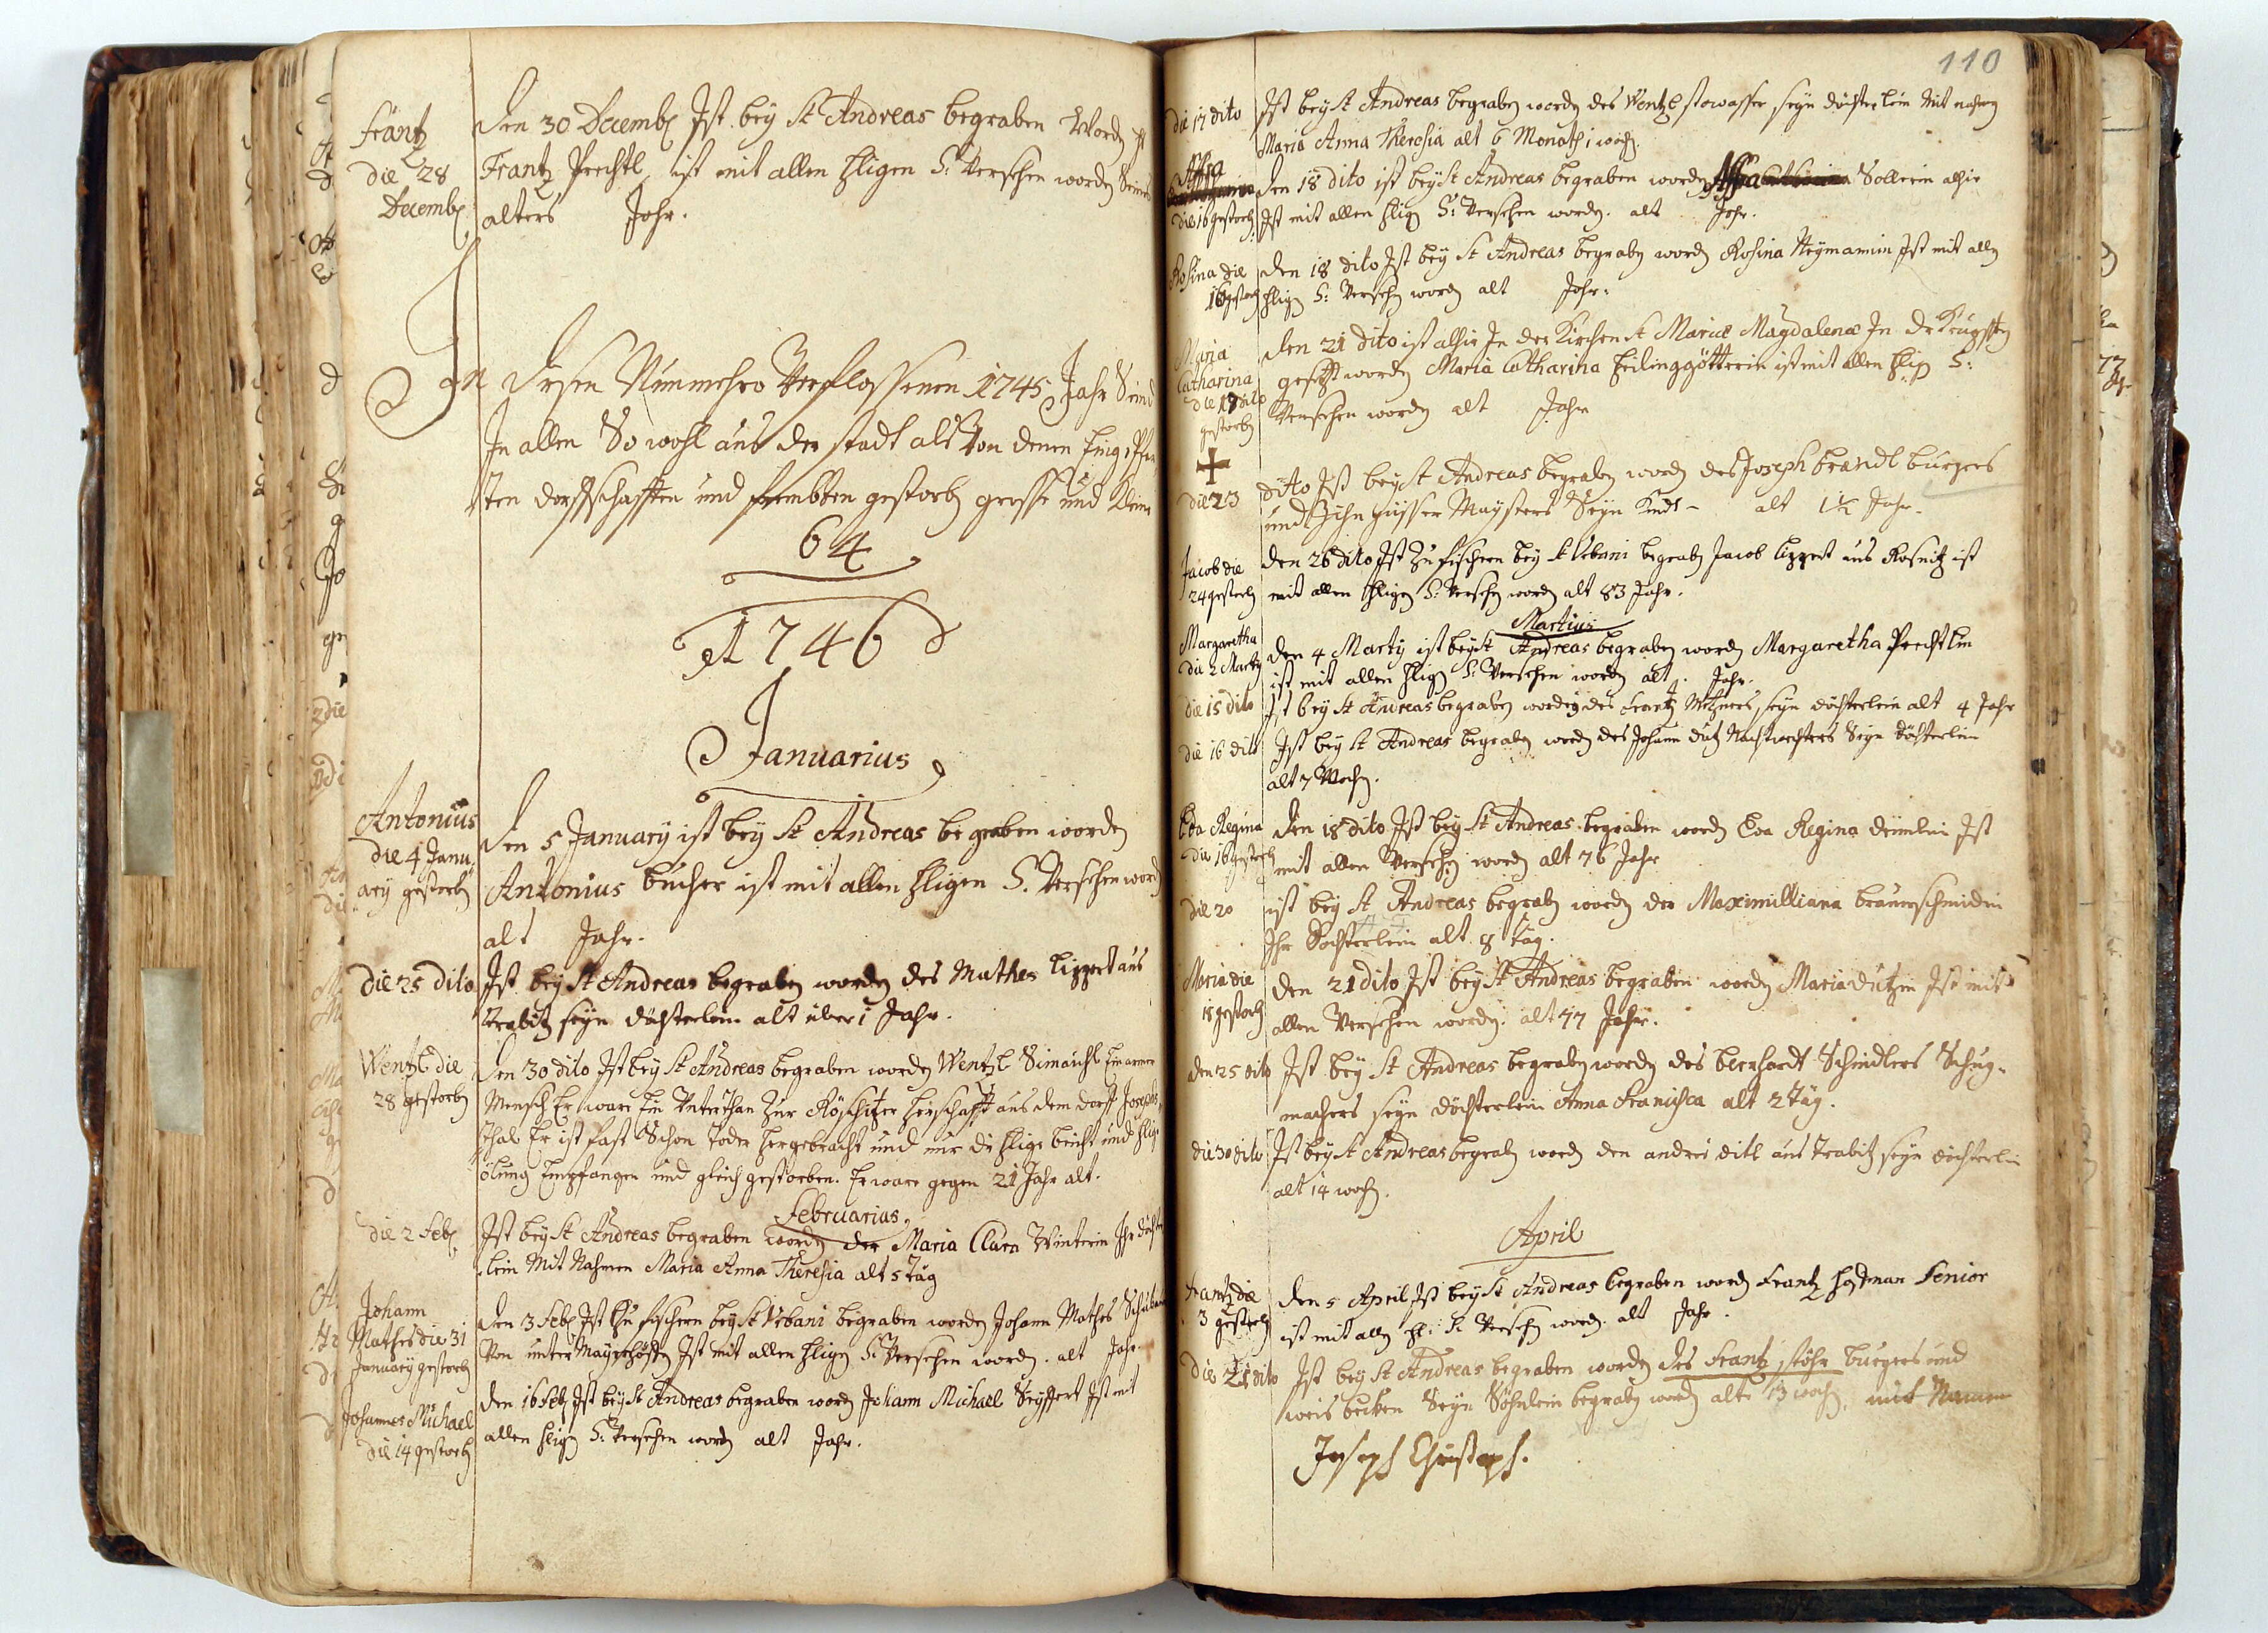 Frantz
die 28
Decemb
Den 30 Decemb Ist bey St Andreas begraben Worden H
Frantz Prechtl ist mit allen hligen S: Versehen worden Seines
alters Jahr.
In diesen Nunmehro Verflossenen 1745 Jahr Seind
In allen So wohl aus der stadt als Von denen
ten dorffschafften und frembten gestorben grosse und Kleine
64
1746
Januarius
Antonius
die 4 Janu
ary gestorben
Den 5 January ist bey St Andreas begraben worden
Antonius bucher ist mit allen hligen S. Versehen word
alt Jahr.
die 25 dito
Ist bey St Andreas begraben worden des Mathes Lippert aus
trabitz seyn döchterlein alt über 1 Jahr.
Wentzl die
28 gestorben
Den 30 dito Ist bey St Andreas begraben worden Wentzl Simaichl Ein armer
Mensch Er ware Ein Unterthan Zur herschafft aus dem dorff Josephs
thal Er ist fast Schon Toder hergebracht und nur die hlige beicht und hlige
ölung Empfangen und gleich gestorben. Er ware gegen 21 Jahr alt.
Februarius
die 2 Feb
Ist bey St Andreas begraben worden der Maria Clara Winterin Ihr döchter
lein Mit Nahmen Maria Anna Theresia alt 5 täg
Johann
Mathes die 31
January gestorben
Den 3 Feb Ist Zu fischern bey St Urbani begraben worden Johann Mathes
Von unter Mayerhöffen Ist mit allen hligen S: Versehen worden. alt Jahr
Johannes Michael
die 14 gestorben
Den 16 Feb Ist bey St Andreas begraben worden Johann Michael Seyffert Ist mit
allen hligen S: Versehen worden alt Jahr.
110
die 17 dito
Ist bey St Andreas begraben worden des Wentzl stowasser seyn döchterlein Mit nahmen
Maria Anna Theresia alt 6 Monath 1 woch.
Affra
die 16 gestorb
Den 18 dito ist bey St Andreas begraben worden Affra Sollerin alhir
Ist mit allen hlig S: Versehen worden. alt Jahr.
Rosina die
16 gestorb
Den 18 dito Ist bey St Andreas begraben worden Rosina Heymanin Ist mit allen
hligen S: Versehen worden alt Jahr.
Maria
Catharina
die 19 dito
gestorben
Den 21 dito ist alhir In der Kirchen St Mariæ Magdalenæ In der Krufften
gesetzt worden Maria Catharina Heilinggötterin ist mit allen hlig S:
Versehen worden alt Jahr
die 23
dito Ist bey St Andreas begraben worden des Joseph brandl burgers
und Zihngiesser Maysters Seyn Kindt alt 1½ Jahr.
Jacob die
24 gestorben
Den 26 dito Ist Zu fischern bey St Urbani begraben Jacob Lippert aus Rosnitz ist
mit allen hligen S: Versehen worden alt 83 Jahr.
Martius
Margaretha
die 2 Marty
Den 4 Marty ist bey St Andreas begraben worden Margaretha Prechtlin
ist mit allen hligen S: Versehen worden alt Jahr.
die 15 dito
Ist bey St Andreas begraben worden des Frantz Metzners seyn döchterlein alt 4 Jahr
die 16 dito
Ist bey St Andreas begraben worden des Johann dutz Nachtwechters Seyn döchterlein
alt 7 Woch.
Eva Regina
die 16 gestorb
Den 18 dito Ist bey St Andreas begraben worden Eva Regina deimlin Ist
mit allen Versehen worden alt 76 Jahr
die 20
ist bey St Andreas begraben worden der Maximilliana braunschmidin
Ihr Töchterlein alt 8 täg.
Maria die
18 gestorb
Den 21 dito Ist bey St Andreas begraben worden Maria dutzin Ist mit
allen Versehen worden. alt 77 Jahr.
den 25 dito
Ist bey St Andreas begraben worden des bernhardt Schindlers Schug-
machers seyn döchterlein Anna Francisca alt 2 täg.
die 30 dito
Ist bey St Andreas begraben worden den andres ditl aus trabitz seyn döchterlein
alt 14 woch.
April
Frantz die
3 gestorben
Den 5 April Ist bey St Andreas begraben worden Frantz Hoffman Senior
ist mit allen hl: S: Versehen worden. alt Jahr.
Die 21 dito
Ist bey St Andreas begraben worden des Frantz stöhr burgers und
weis becken Seyn Söhnlein begraben worden alt 13 woch, mit Namen
Joseph Christoph.